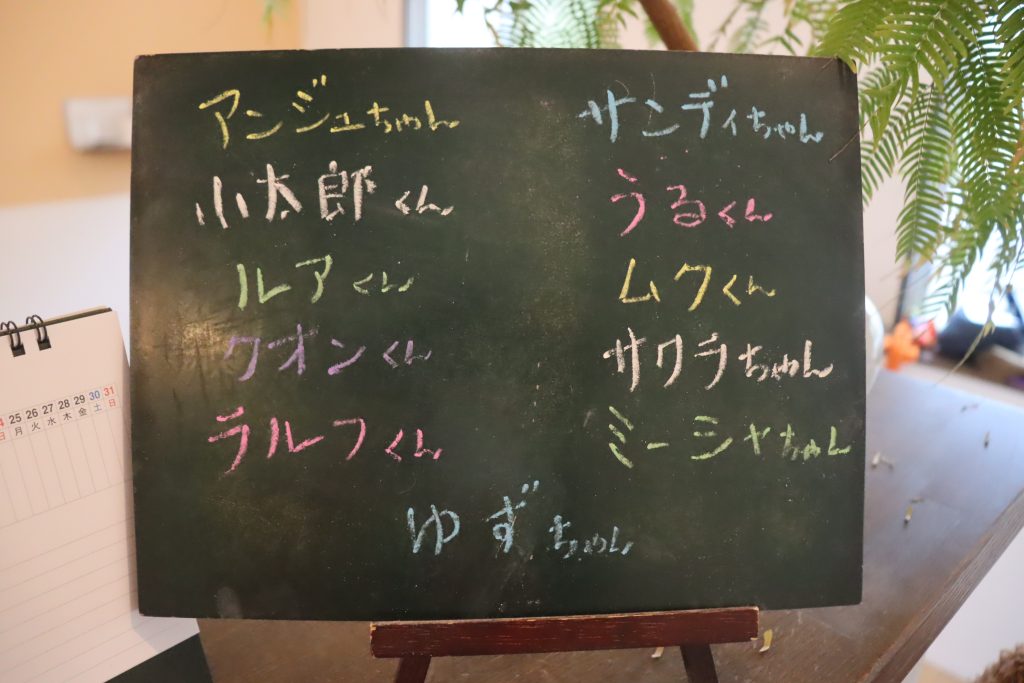 アンジュちゃん
小太郎くん
ルアくん
クオンくん
ラルフくん
サンディちゃん
うるくん
ムクくん
サクラちゃん
ミーシャちゃん
ゆずちゃん
25 26 27 28 29 30 31
日 月 火 水 木 金 土 日